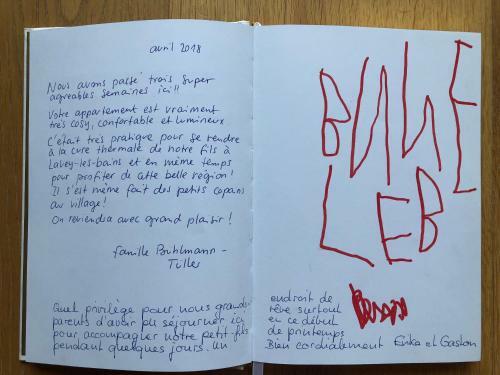 avril 2018
Nous avons passé trois super
agréables semaines ici!!
Votre appartement est vraiment
très cosy, confortable et lumineux
C'était très pratique pour se rendre
à la cure thermale de notre fils à
Lavey-les-bains et en même temps
pour profiter de cette belle région!
Il s'est même fait des petits copains
au village!
On reviendra avec grand plaisir!
famille
Quel privilège pour nous grands-
parents d'avoir pu séjourner ici
pour accompagner notre petit fils
pendant quelques jours. Un
LEB
endroit de
rêve surtout
en ce début
de printemps
Bien cordialement Erika et Gaston